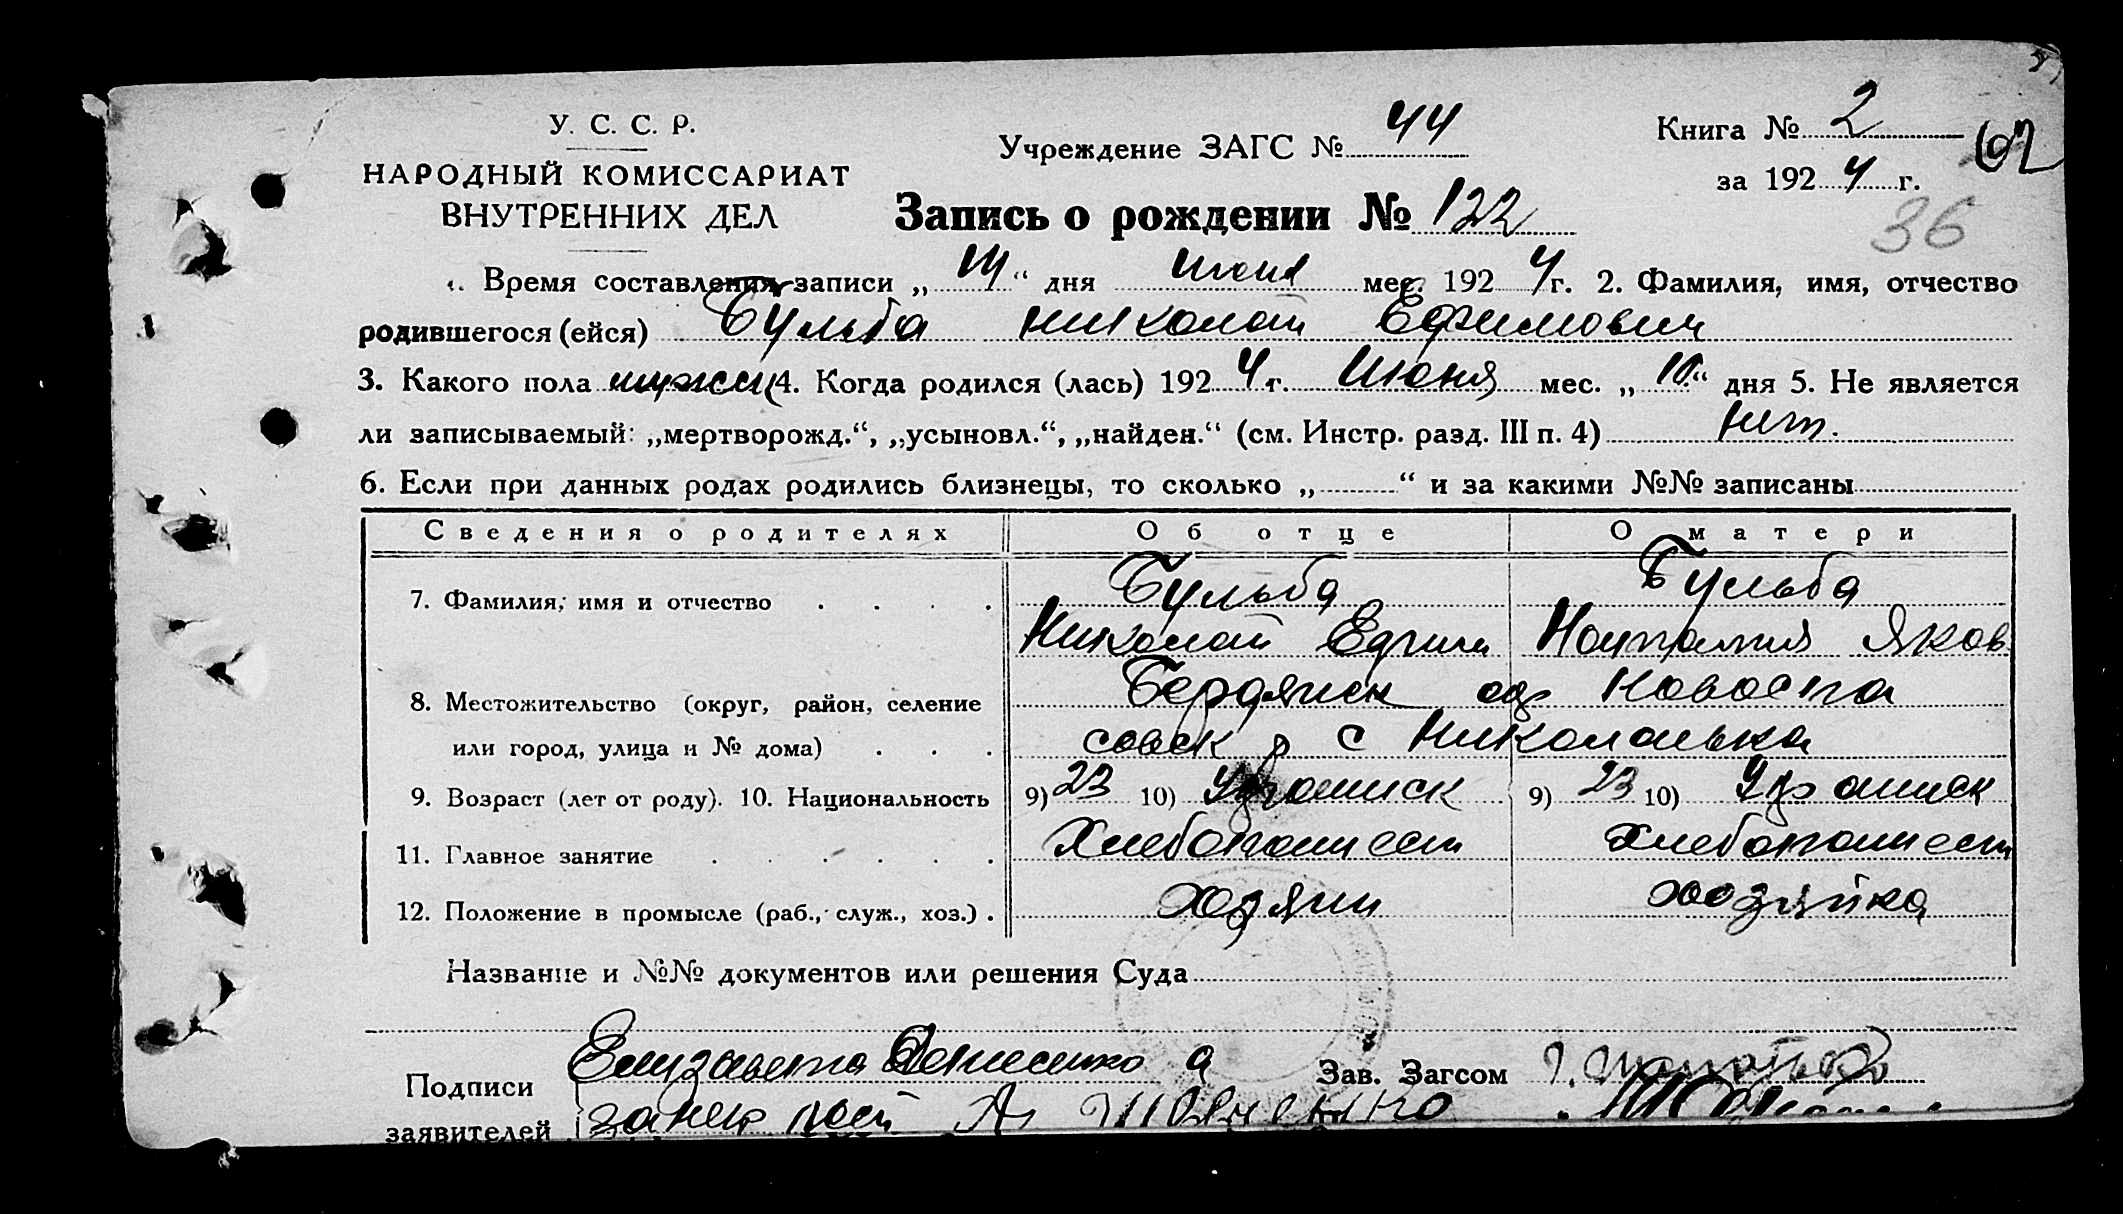 У. С. С. Р.
НАРОДНЫЙ КОМИССАРИАТ
ВНУТРЕННИХ ДЕЛ
Учреждение ЗАГС № 44
Книга № 2
за 1924 г.
62
36
Запись о рождении № 122
Время составления записи „14“ дня июня мес. 1924 г. 2. Фамилия, имя, отчество
родившегося (ейся) Бульба николай Ефимович
3. Какого пола мужск 4. Когда родился (лась) 1924 г. Июня мес. „10“ дня 5. Не является
ли записываемый: „мертворожд.“, „усыновл.“, „найден.“ (см. Инстр. разд. III п. 4) Нет.
6. Если при данных родах родились близнецы, то сколько „ “ и за какими №№ записаны
Сведения о родителях Об отце О матери
7. Фамилия, имя и отчество Бульба Бульба
Николай Ефим Наталия Яков
8. Местожительство (округ, район, селение Бердянск Новоспа
или город, улица и № дома) совск р с Николаевка
9. Возраст (лет от роду). 10. Национальность 9) 23 10) Украинск 9) 23 10) Украинск
11. Главное занятие Хлебопашест Хлебопашест
12. Положение в промысле (раб., служ., хоз.) Хозяин хозяйка
Название и №№ документов или решения Суда
Подписи Елизавета Денисенко а Зав. Загсом
заявителей